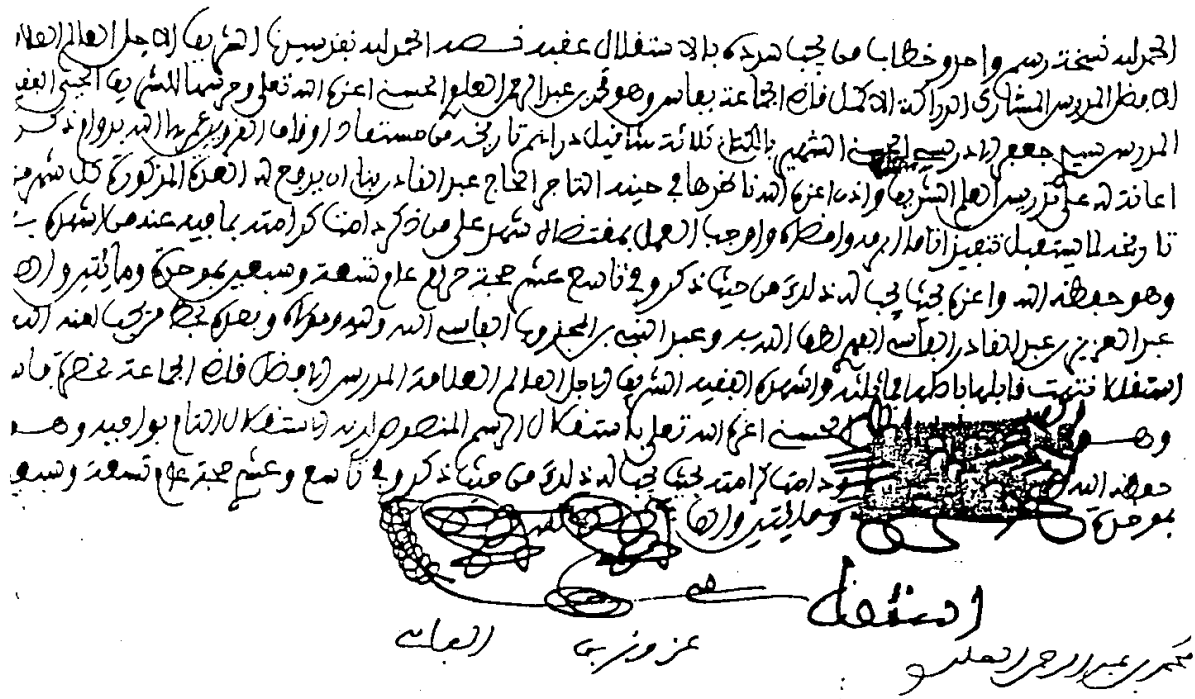 الحمد لله نسخة رسم واحد وخطاب من يجب سرده بالاستقلال عقبه نصه الحمد لله بفرسين الشريف الاجل العالم العلا
الافضل المدرس المشارك الدراكة الاكمل قاض الجماعة بفاس وهو محمد بن عبد الرحمن العلوي الحسني اعزه الله تعلى وحرسها للشريف الفقيه
المدرس سيدي جعفر الادريسي الحسني الشهير بالكتاني ثلاثة مثاقيل دراهم تاريخه من مستفاد اوقاف القرويين عمرها الله بدوام ذكره
اعانة له على تدريس العلم الشريف واذن اعزه الله ناظرها في حينه التاجر الحاج عبد القادر بان يدفع له العدة المذكورة كل شهر من
تاريخه لما يستقبل تنفيذا تاما ابرمه وامضاه واوجب العمل بمقتضاه شهد على من ذكر دامت كرامته بما فيه عنه من اشهده
وهو حفظه الله واعزه بحيث يجب له ذلك من حيث ذكر وفي تاسع عشر حجة حرام عام تسعة وسبعين بموحدة ومائتين والف
عبد العزيز بن عبد القادر الفاسي الفهري لطف الله به وعبد النبي بن المجذوب الفاسي الله وليه ومولاه وبعده بخط من يجب اعنه الله
استقلا فانتهت قابلها باصلها فماثلته واشهده الفقيه الشريف الاجل العالم العلامة المدرس الافضل قاض الجماعة بحضرة فاس
وهو الحسني اعزه الله تعلى باستقلال الرسم المنصوص لديه الاستقلال التام بواجبه وهو
حفظه الله ودامت كرامته بحيث يجب له ذلك من حيث ذكر وفي تاسع وعشري حجة عام تسعة وسبعين
بموحدة ومائتين والف
استقل
عبد ربه الفاسي
محمد بن عبد الرحمن العلوي